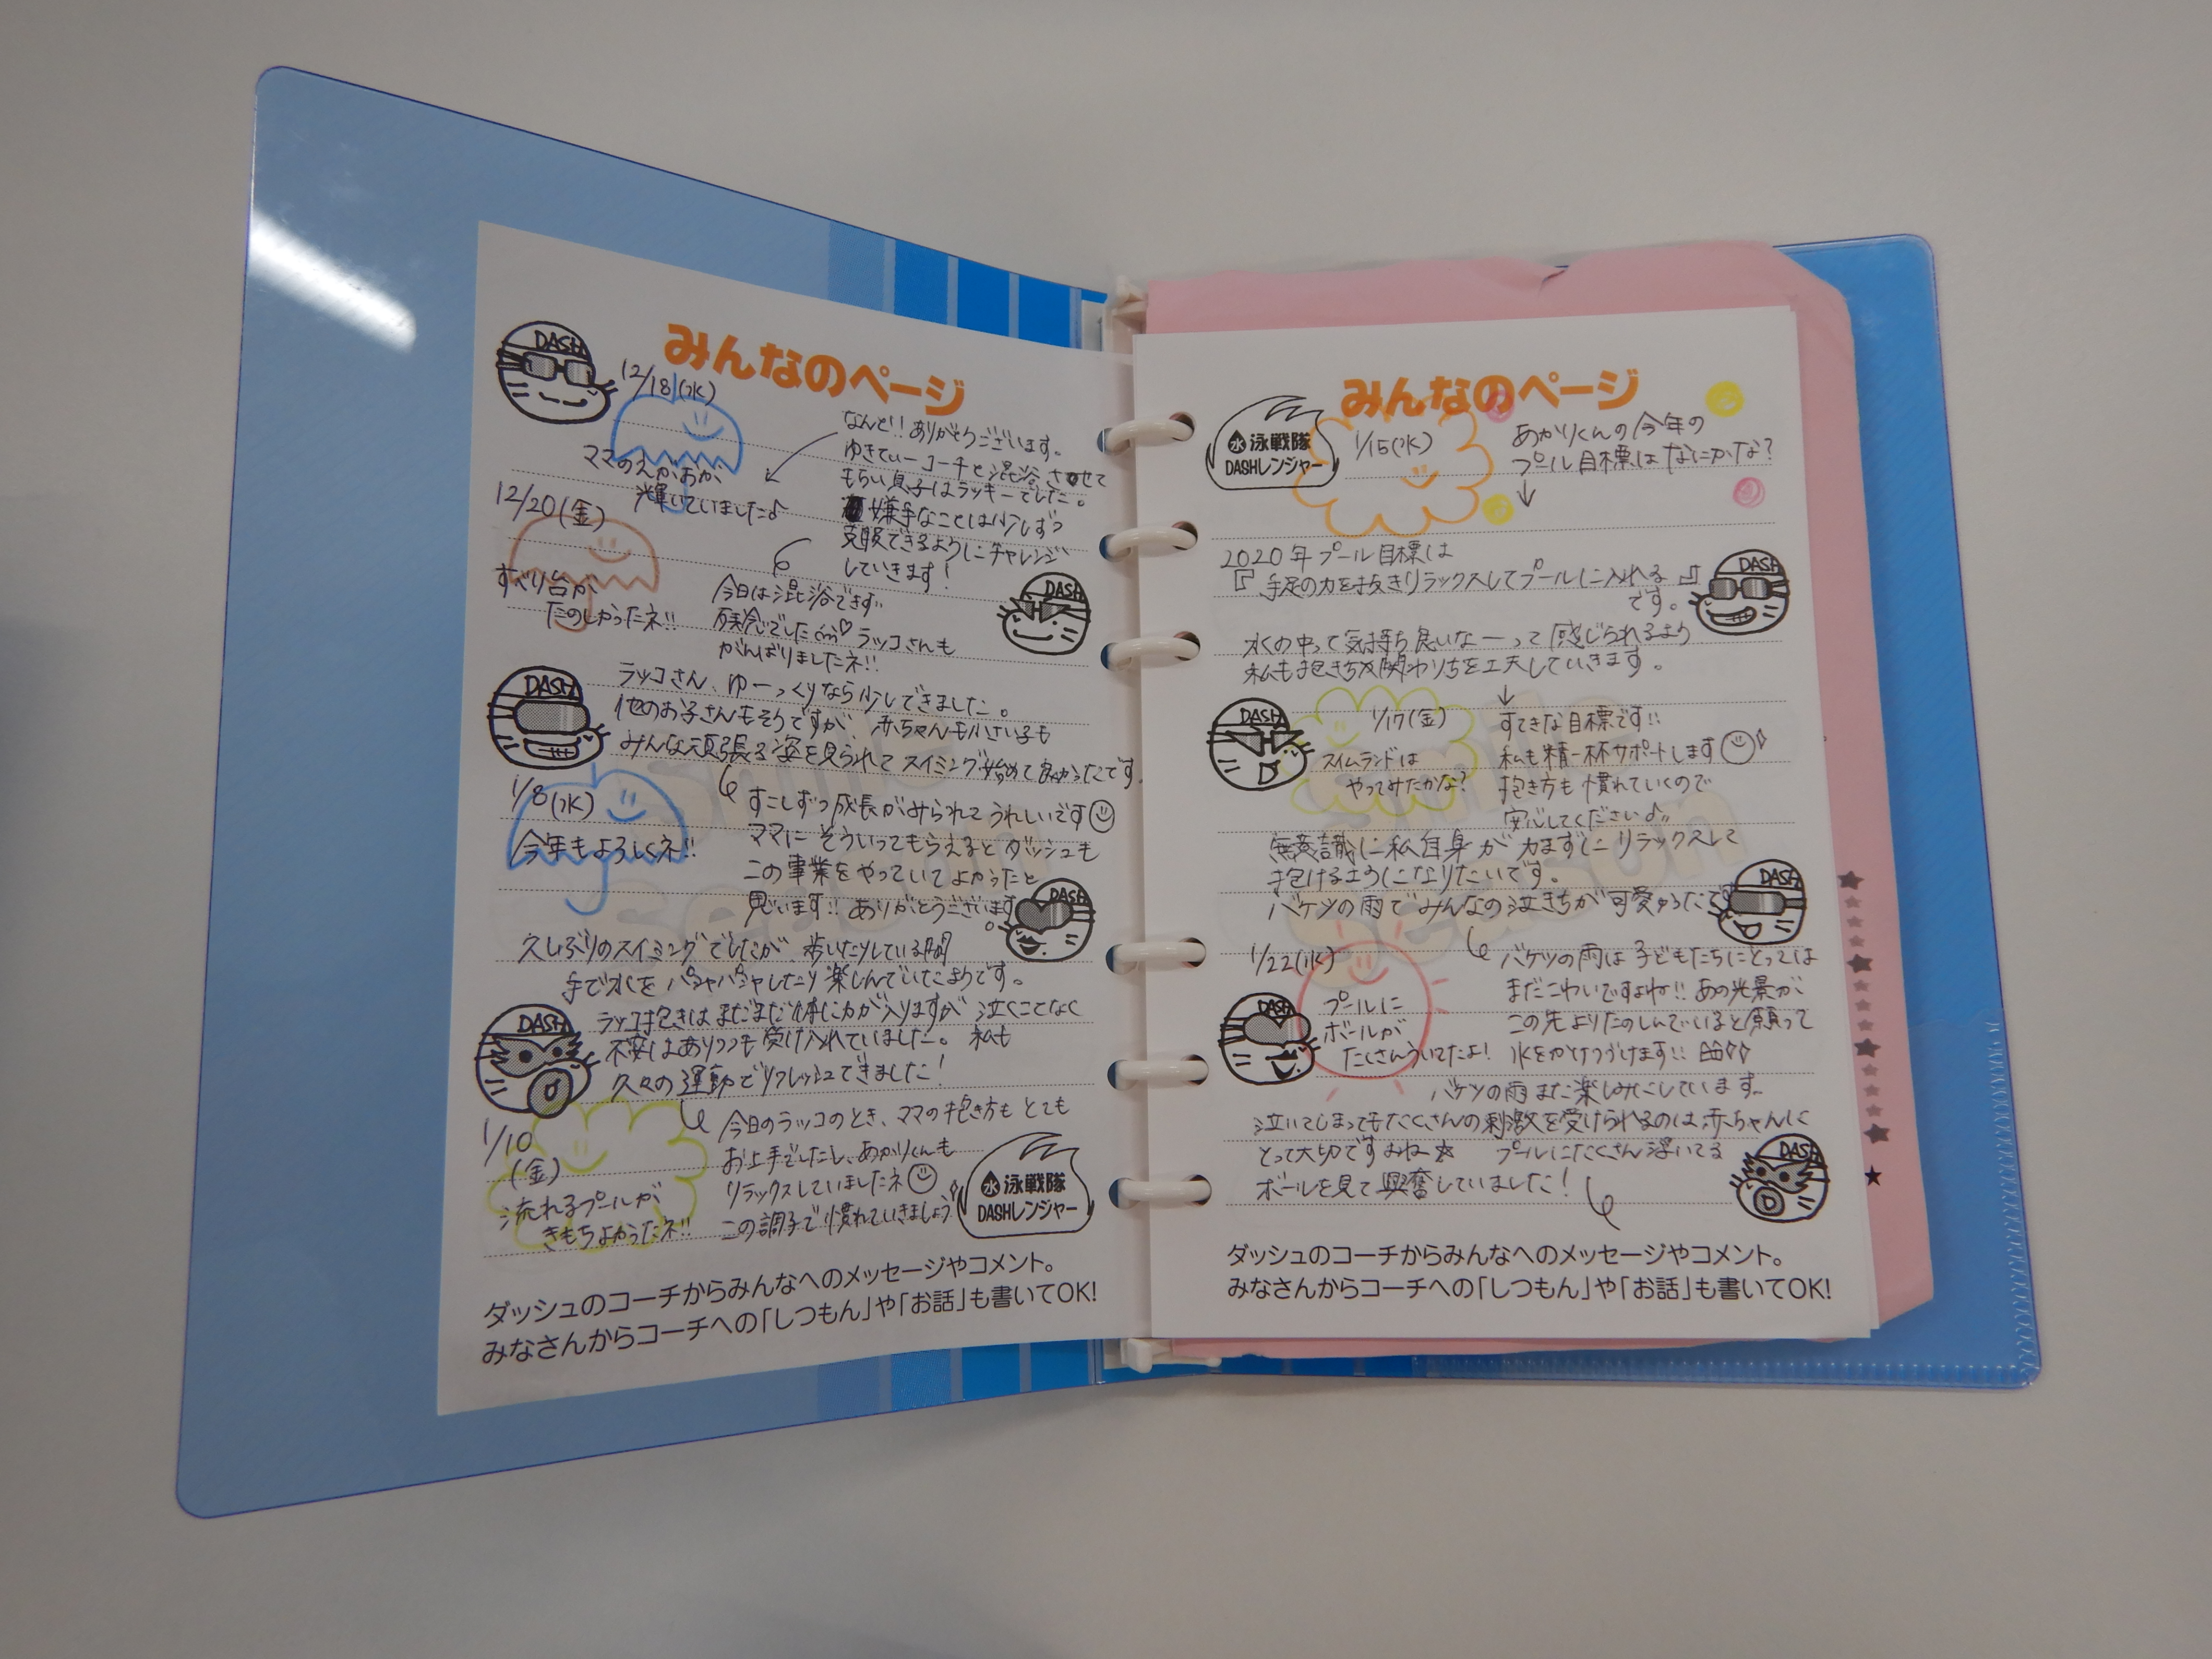 DASH
みんなのページ
12/18(水)
ママのえがおが
輝いていました♪
なんと!!ありがとうございます。
ゆきてぃーコーチと混浴させて
もらい息子はラッキーでした。
嫌手なことは少しずつ
克服できるようにチャレンジ
していきます!
12/20(金)
すべり台が
たのしかったネ!!
今日は混浴できず
残念でした(m)♡ラッコさんも
がんばりましたネ!!
DASH
DASH
ラッコさん、ゆーっくりなら少しできました。
他のお子さんもそうですが、赤ちゃんも小さい子も
みんな頑張る姿を見られてスイミング始めて良かったです。
1/8(水)
今年もよろしくネ!!
すこしずつ成長がみられてうれしいです
ママにそういってもらえるとダッシュも
この事業をやっていてよかったと
思います!!ありがとうございます。
DASH
久しぶりのスイミングでしたが、歩いたりしている間
手で水をパシャパシャしたり楽しんでいたようです。
DASH
ラッコ抱きはまだまだ体に力が入りますが泣くことなく
不安はありつつも受け入れていました。私も
久々の運動でリフレッシュできました!
1/10
(金)
流れるプールが
きもちよかったネ!!
今日のラッコのとき、ママの抱き方もとても
お上手でしたし、あかりくんも
リラックスしていましたネ
この調子で慣れていきましょう
水 泳戦隊
DASHレンジャー
ダッシュのコーチからみんなへのメッセージやコメント。
みなさんからコーチへの「しつもん」や「お話」も書いてOK!
みんなのページ
水 泳戦隊
DASHレンジャー
1/15(水)
あかりくんの今年の
プール目標はなにかな?
↓
2020年プール目標は
『手足の力を抜きリラックスしてプールに入れる』
です。
DASH
水の中って気持ち良いなーって感じられるよう
私も抱き方や関わり方を工夫していきます。
↓
DASH
1/17(金)
スイムランドは
やってみたかな?
すてきな目標です!!
私も精一杯サポートします
抱き方も慣れていくので
安心してください♪
無意識に私自身が力まずにリラックスして
抱けるようになりたいです。
バケツの雨でみんなの泣き方が可愛かったです
DASH
1/22(水)
プールに
ボールが
たくさんういてたよ!
バケツの雨は子どもたちにとっては
まだこわいですよね!!あの光景が、
この先よりたのしんでいると願って
水をかけつづけます!!
DASH
バケツの雨また楽しみにしています。
泣いてしまってもたくさんの刺激を受けられるのは、赤ちゃんに
とって大切ですよね☆ プールにたくさん浮いてる
ボールを見て興奮していました!
DASH
ダッシュのコーチからみんなへのメッセージやコメント。
みなさんからコーチへの「しつもん」や「お話」も書いてOK!